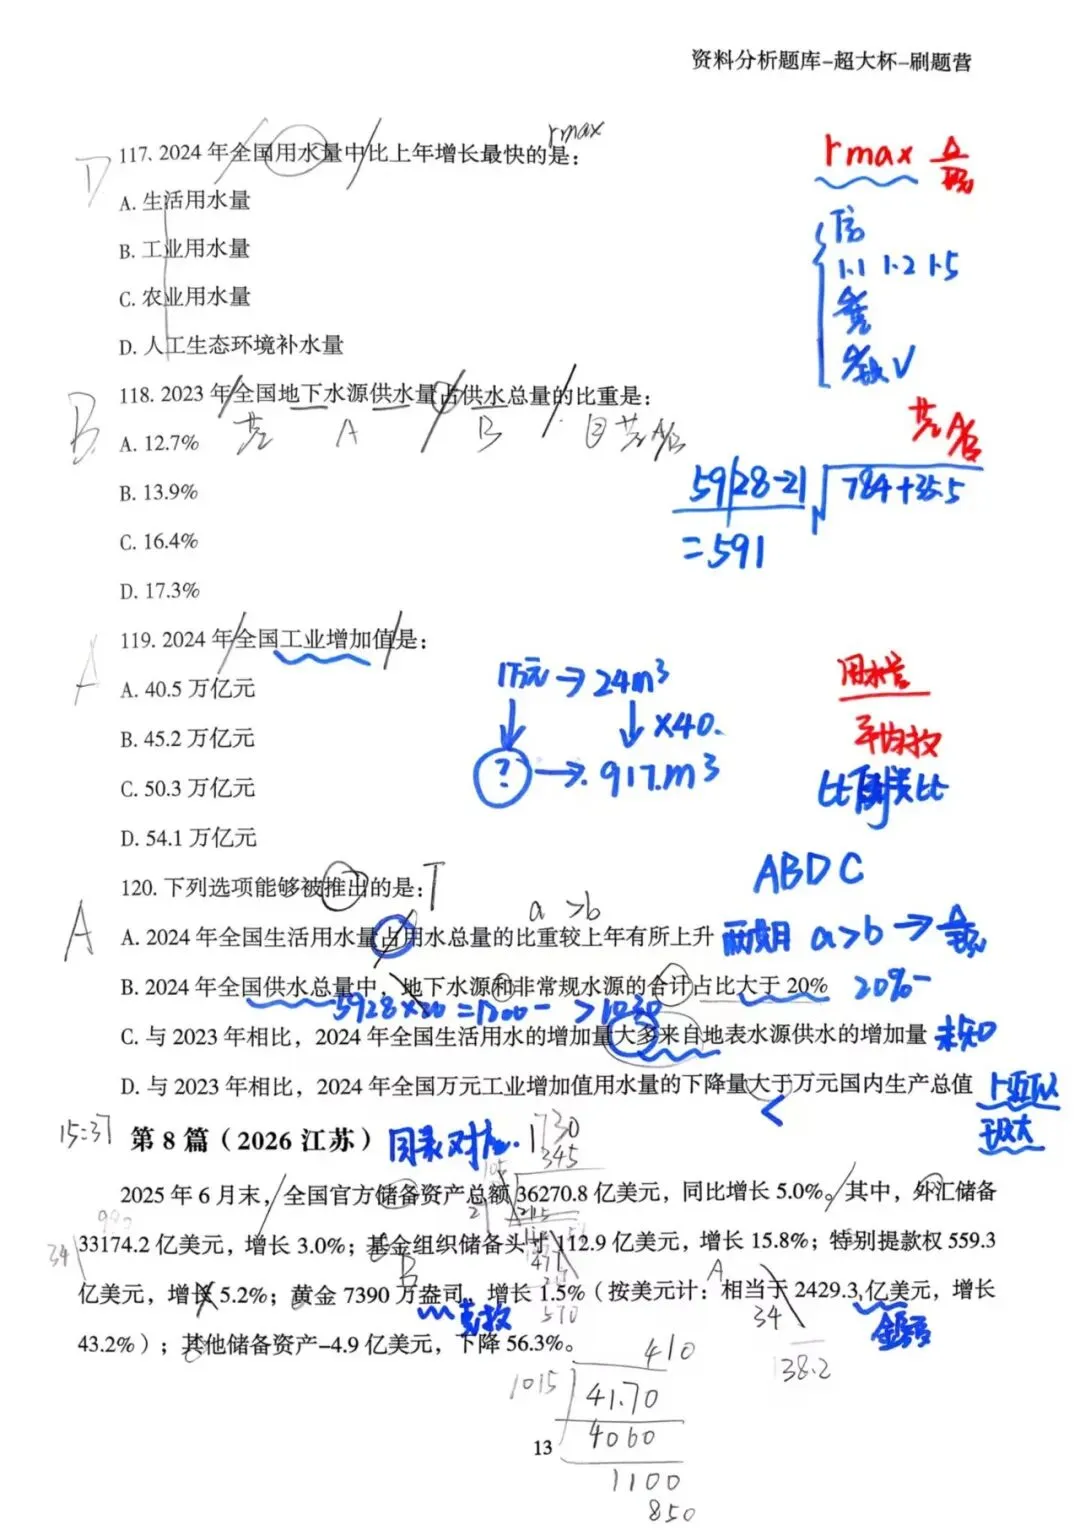 资料分析题库-超大杯-刷题营
rmax
D 117、2024 年全国用水量中比上年增长最快的是：
rmax
A. 生活用水量
B. 工业用水量
1.1 1.2 1.5
C. 农业用水量
D. 人工生态环境补水量
B 118. 2023 年全国地下水源供水量占供水总量的比重是：
A B
A. 12.7%
5928-21 784+35.5
B. 13.9%
=591
C. 16.4%
D. 17.3%
A 119. 2024 年全国工业增加值是：
1万元→24m³
用水量
A. 40.5 万亿元
×40.
平均数
B. 45.2 万亿元
? → 917.m³
C. 50.3 万亿元
D. 54.1 万亿元
ABDC
120. 下列选项能够被推出的是： T
a >b
A A. 2024 年全国生活用水量占用水总量的比重较上年有所上升 两期 a>b →
B. 2024 年全国供水总量中，地下水源和非常规水源的合计占比大于 20% 20%-
5928×20 =1200- >1030
C. 与 2023 年相比，2024 年全国生活用水的增加量大多来自地表水源供水的增加量 未知
D. 与 2023 年相比，2024 年全国万元工业增加值用水量的下降量大于万元国内生产总值
<
15:37 第 8 篇（2026 江苏） 1730
345
2025 年 6 月末，全国官方储备资产总额 36270.8 亿美元，同比增长 5.0%。其中，外汇储备
34 33174.2 亿美元，增长 3.0%；基金组织储备头寸 112.9 亿美元，增长 15.8%；特别提款权 559.3
B A
亿美元，增长 5.2%；黄金 7390 万盎司，增长 1.5%（按美元计：相当于 2429.3 亿美元，增长
570 34
43.2%）；其他储备资产-4.9 亿美元，下降 56.3%。
410 138.2
1015 41.70
4060
13
1100
850